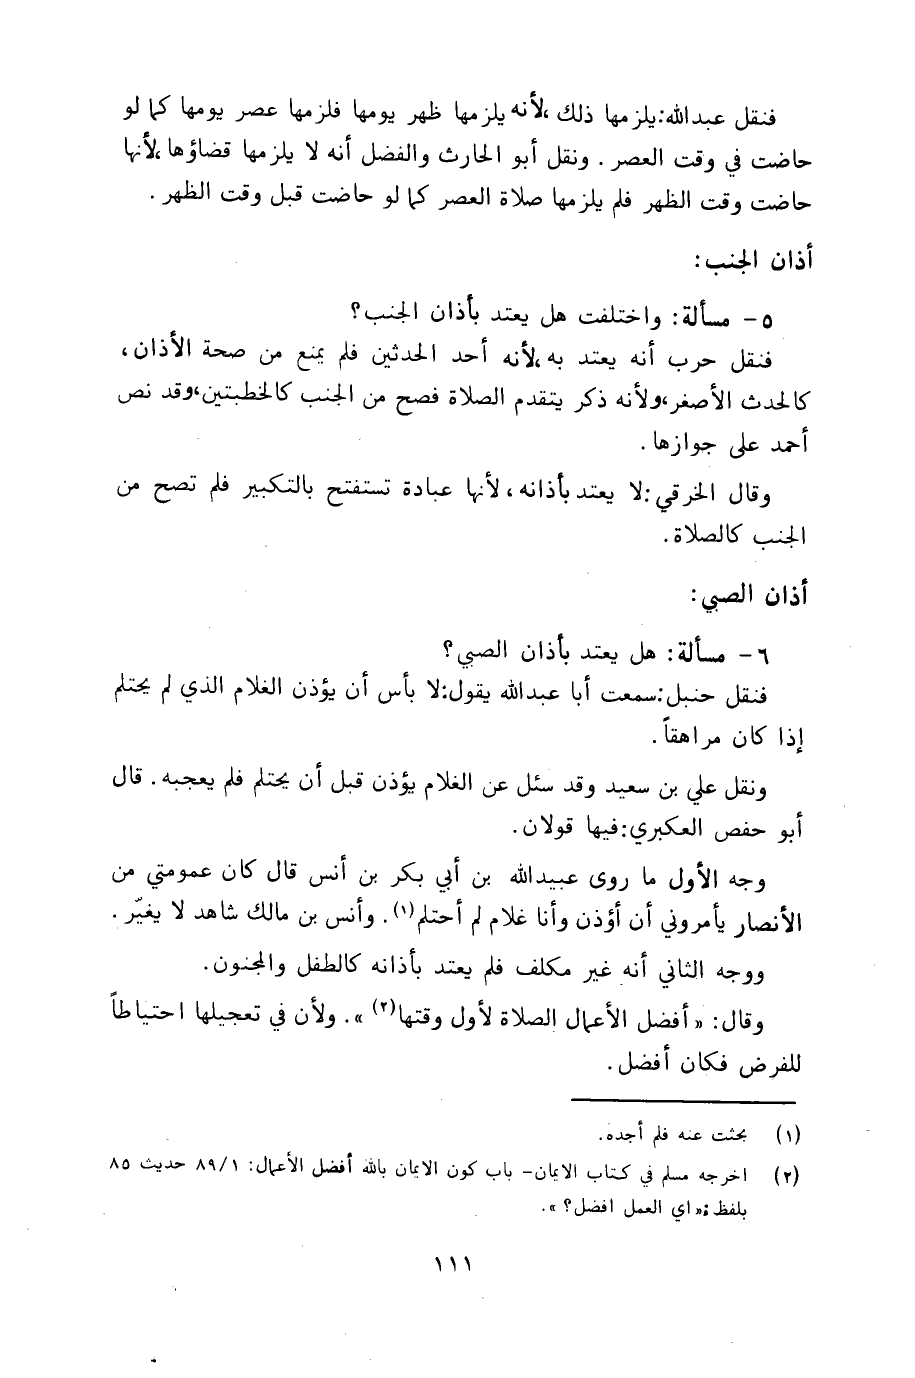 فنقل عبدالله:يلزمها ذلك ،لأنه يلزمها ظهر يومها فلزمها عصر يومها كما لو
حاضت في وقت العصر . ونقل أبو الحارث والفضل أنه لا يلزمها قضاؤها ،لأنها
حاضت وقت الظهر فلم يلزمها صلاة العصر كما لو حاضت قبل وقت الظهر .
أذان الجنب:
٥ - مسألة: واختلفت هل يعتد بأذان الجنب؟
فنقل حرب أنه يعتد به ،لأنه أحد الحدثين فلم يمنع من صحة الأذان ،
كالحدث الأصغر ،ولأنه ذكر يتقدم الصلاة فصح من الجنب كالخطبتين ،وقد نص
أحمد على جوازها .
وقال الخرقي :لا يعتد بأذانه ، لأنها عبادة تستفتح بالتكبير فلم تصح من
الجنب كالصلاة .
أذان الصبي:
٦ - مسألة: هل يعتد بأذان الصبي؟
فنقل حنبل :سمعت أبا عبدالله يقول:لا بأس أن يؤذن الغلام الذي لم يحتلم
إذا كان مراهقاً .
ونقل علي بن سعيد وقد سئل عن الغلام يؤذن قبل أن يحتلم فلم يعجبه . قال
أبو حفص العكبري:فيها قولان .
وجه الأول ما روى عبيدالله بن أبي بكر بن أنس قال كان عمومتي من
الأنصار يأمروني أن أؤذن وأنا غلام لم أحتلم(١) . وأنس بن مالك شاهد لا يغيّر .
ووجه الثاني أنه غير مكلف فلم يعتد بأذانه كالطفل والمجنون .
وقال: « أفضل الأعمال الصلاة لأول وقتها(٢) » . ولأن في تعجيلها احتياطاً
للفرض فكان أفضل .
(١) بحثت عنه فلم أجده .
(٢) اخرجه مسلم في كتاب الايمان - باب كون الايمان بالله أفضل الأعمال: ٨٩/١ حديث ٨٥
بلفظ :« اي العمل افضل؟ » .
١١١